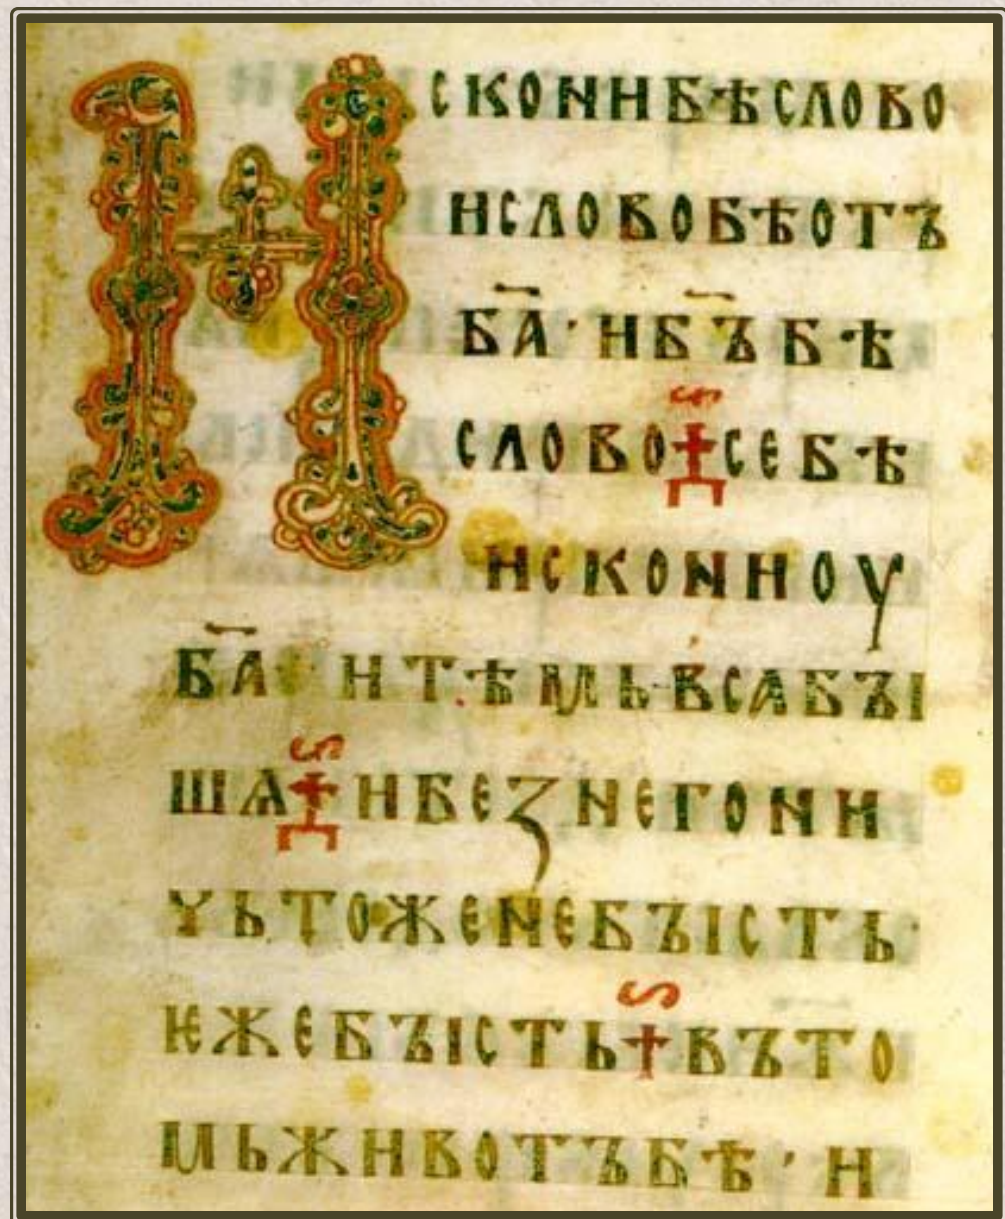 Искони бѣ слово
и слово бѣ отъ
б҃а · и б҃ъ бѣ
слово се бѣ
искони оу
б҃а · и тѣмь вса бꙑ
шѧ и беӡ него ни
чьтоже не бꙑсть·
ѥже бꙑсть въ то
мь животъ бѣ · и